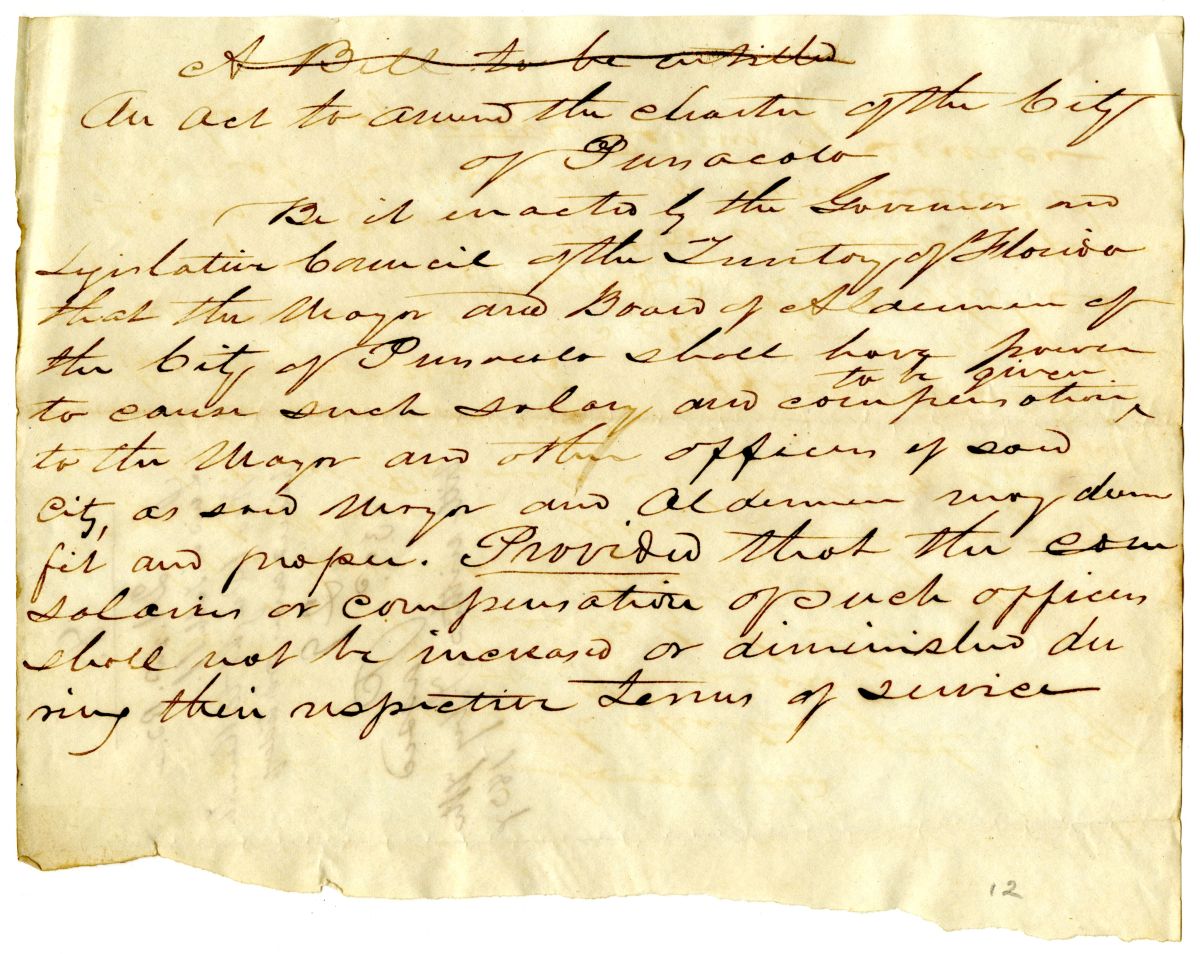 A Bill to be entitled
An act to amend the charter of the City
of Pensacola
Be it enacted by the Governor and
Legislative Council of the Territory of Florida
that the Mayor and Board of Aldermen of
the City of Pensacola shall have power
to be given
to cause such salary and compensation ‸
to the Mayor and other officers of said
City, as said Mayor and Aldermen may deem
fit and proper. Provided that the com
salaries or compensation of such officers
shall not be increased or diminished du
ring their respective terms of service
12